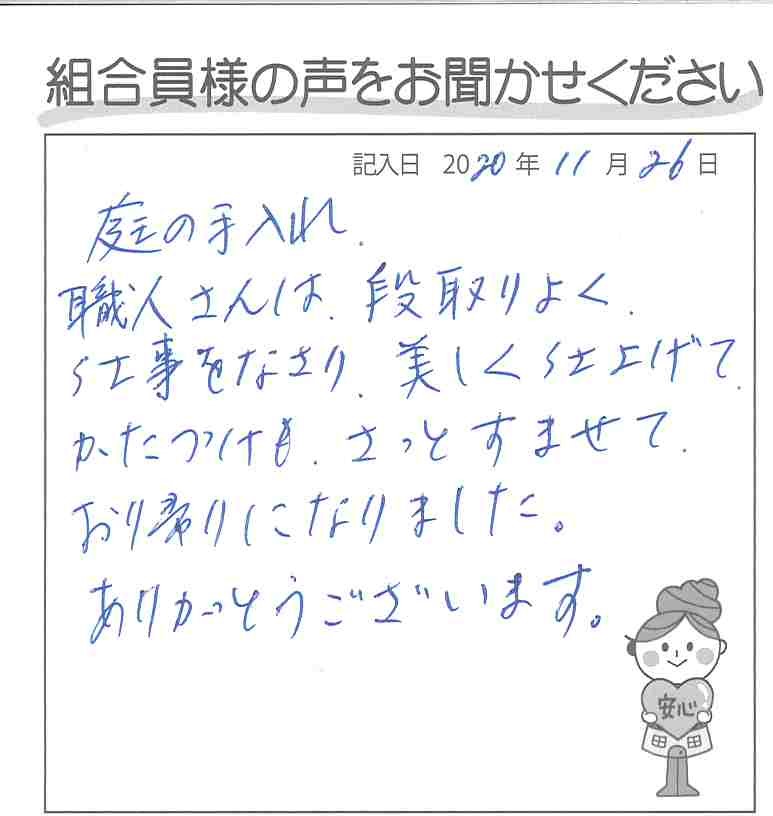 組合員様の声をお聞かせください
記入日 2020年11月26日
庭の手入れ.
職人さんは、段取りよく、
仕事をなさり、美しく仕上げて、
かたつけも、さっとすませて、
おり帰りになりました。
ありがとうございます。
安心